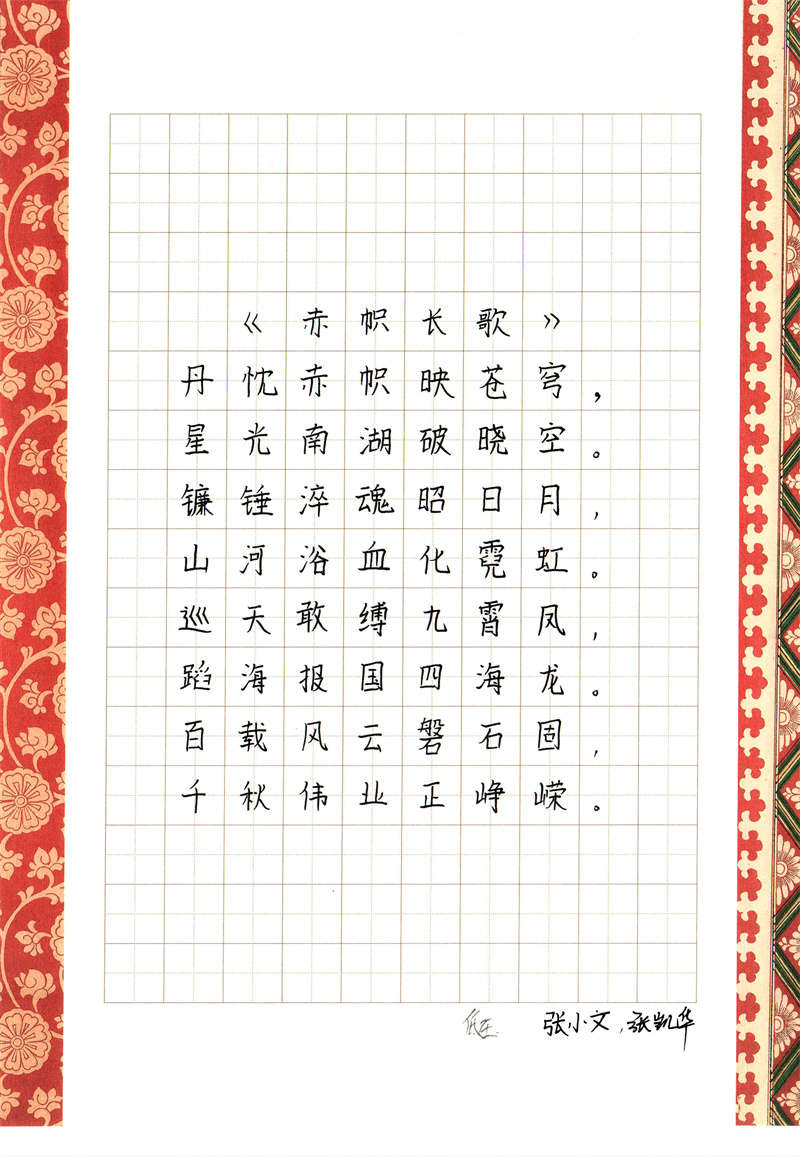 《赤帜长歌》
丹忱赤帜映苍穹，
星光南湖破晓空。
镰锤淬魂昭日月，
山河浴血化霓虹。
巡天敢缚九霄凤，
蹈海报国四海龙。
百载风云磐石固，
千秋伟业正峥嵘。
张小文，张凯华